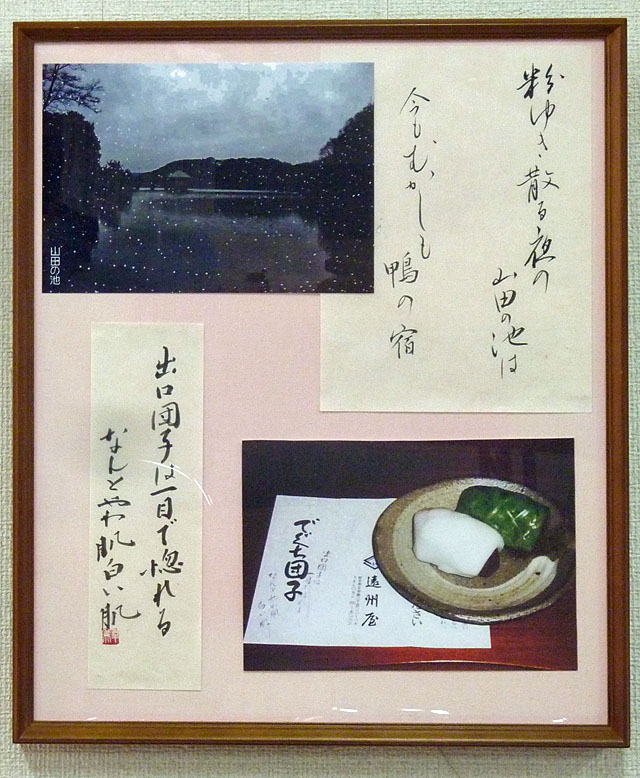 粉ゆき散る夜の
山田の池は
今もむかしも
鴨の宿
山田の池
出口団子は一目で惚れる
なんとやわ肌白い肌
でぐち団子
遠州屋